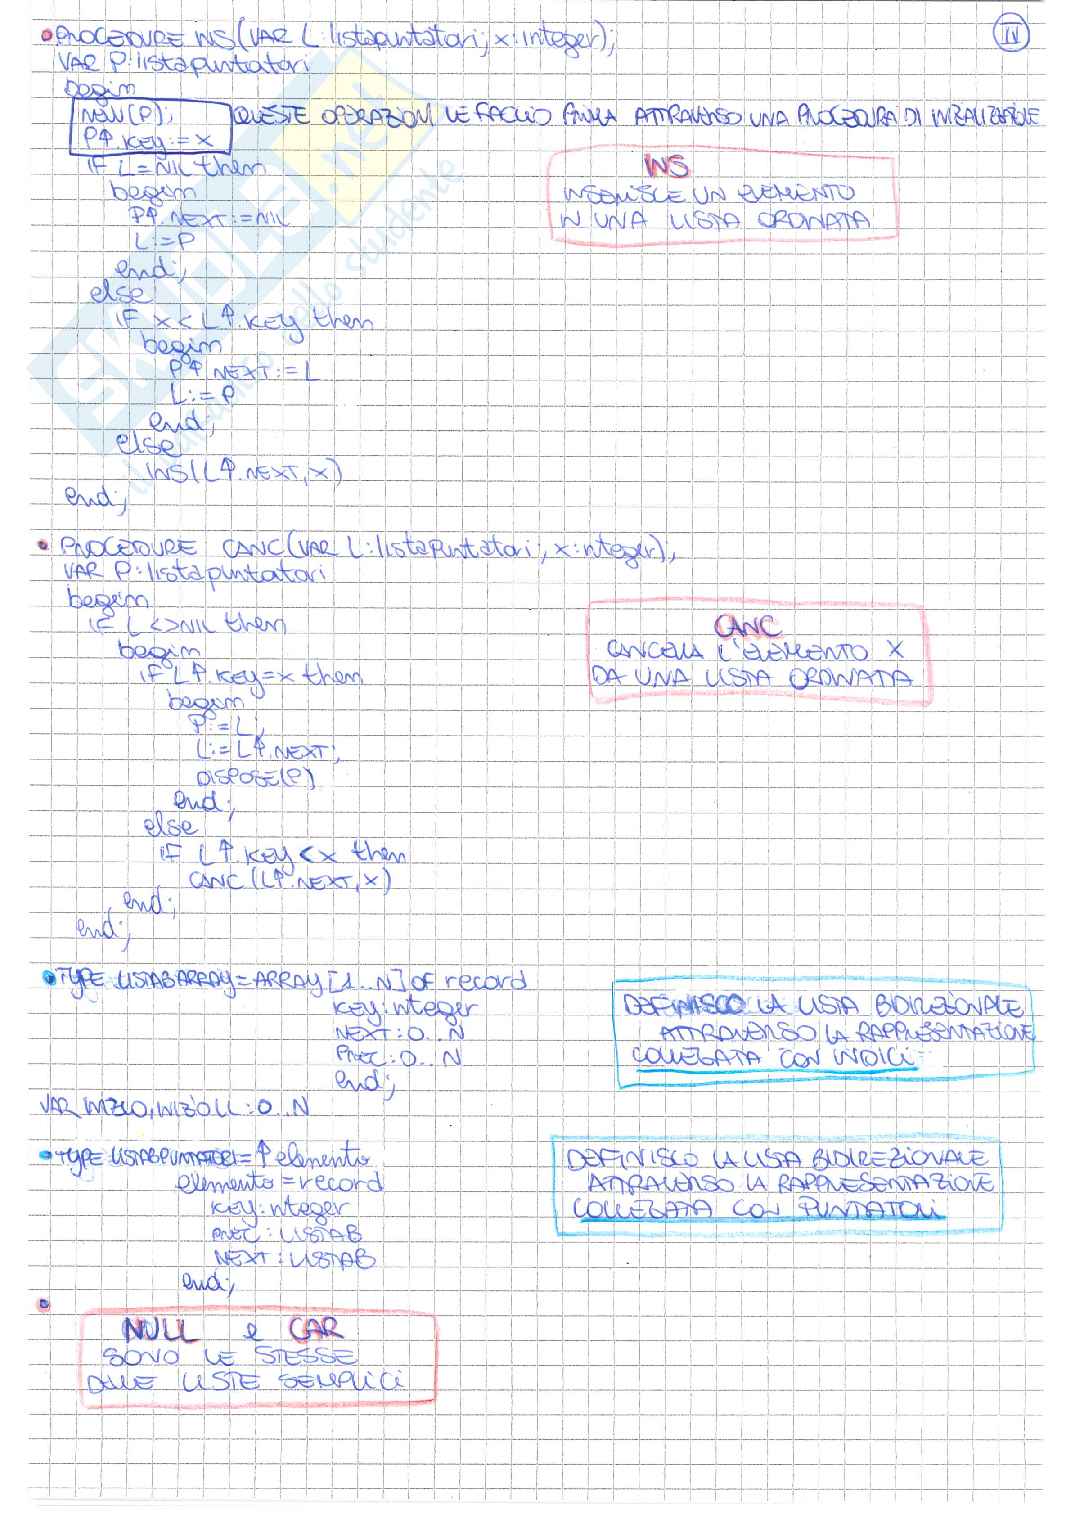 IV
• PROCEDURE INS(VAR L:listapuntatori; x:integer);
VAR P:listapuntatori
begin
NEW(P);
P↑.KEY:=X
QUESTE OPERAZIONI LE FACCIO PRIMA ATTRAVERSO UNA PROCEDURA DI INIZIALIZZAZIONE
IF L=NIL then
begin
P↑.NEXT:=NIL
L:=P
end;
else
IF X<L↑.KEY then
begin
P↑.NEXT:=L
L:=P
end;
else
INS(L↑.NEXT,X)
end;
INS
INSERISCE UN ELEMENTO
IN UNA LISTA ORDINATA
• PROCEDURE CANC(VAR L:listapuntatori; x:integer);
VAR P:listapuntatori
begin
IF L<>NIL then
begin
IF L↑.KEY=x then
begin
P:=L;
L:=L↑.NEXT;
DISPOSE(P)
end;
else
IF L↑.KEY<x then
CANC(L↑.NEXT,X)
end;
end;
CANC
CANCELLA L'ELEMENTO X
DA UNA LISTA ORDINATA
• TYPE LISTABARRAY=ARRAY[1..N] of record
KEY:integer
NEXT:0..N
PREC:0..N
end;
VAR INIZIO, :0..N
DEFINISCO LA LISTA BIDIREZIONALE
ATTRAVERSO LA RAPPRESENTAZIONE
COLLEGATA CON INDICI
• TYPE LISTABPUNTATORI=↑elemento
elemento=record
KEY:integer
PREC:LISTAB
NEXT:LISTAB
end;
DEFINISCO LA LISTA BIDIREZIONALE
ATTRAVERSO LA RAPPRESENTAZIONE
COLLEGATA CON PUNTATORI
•
NULL e CAR
SONO LE STESSE
DELLE LISTE SEMPLICI
SKUOLA.net
dello studente